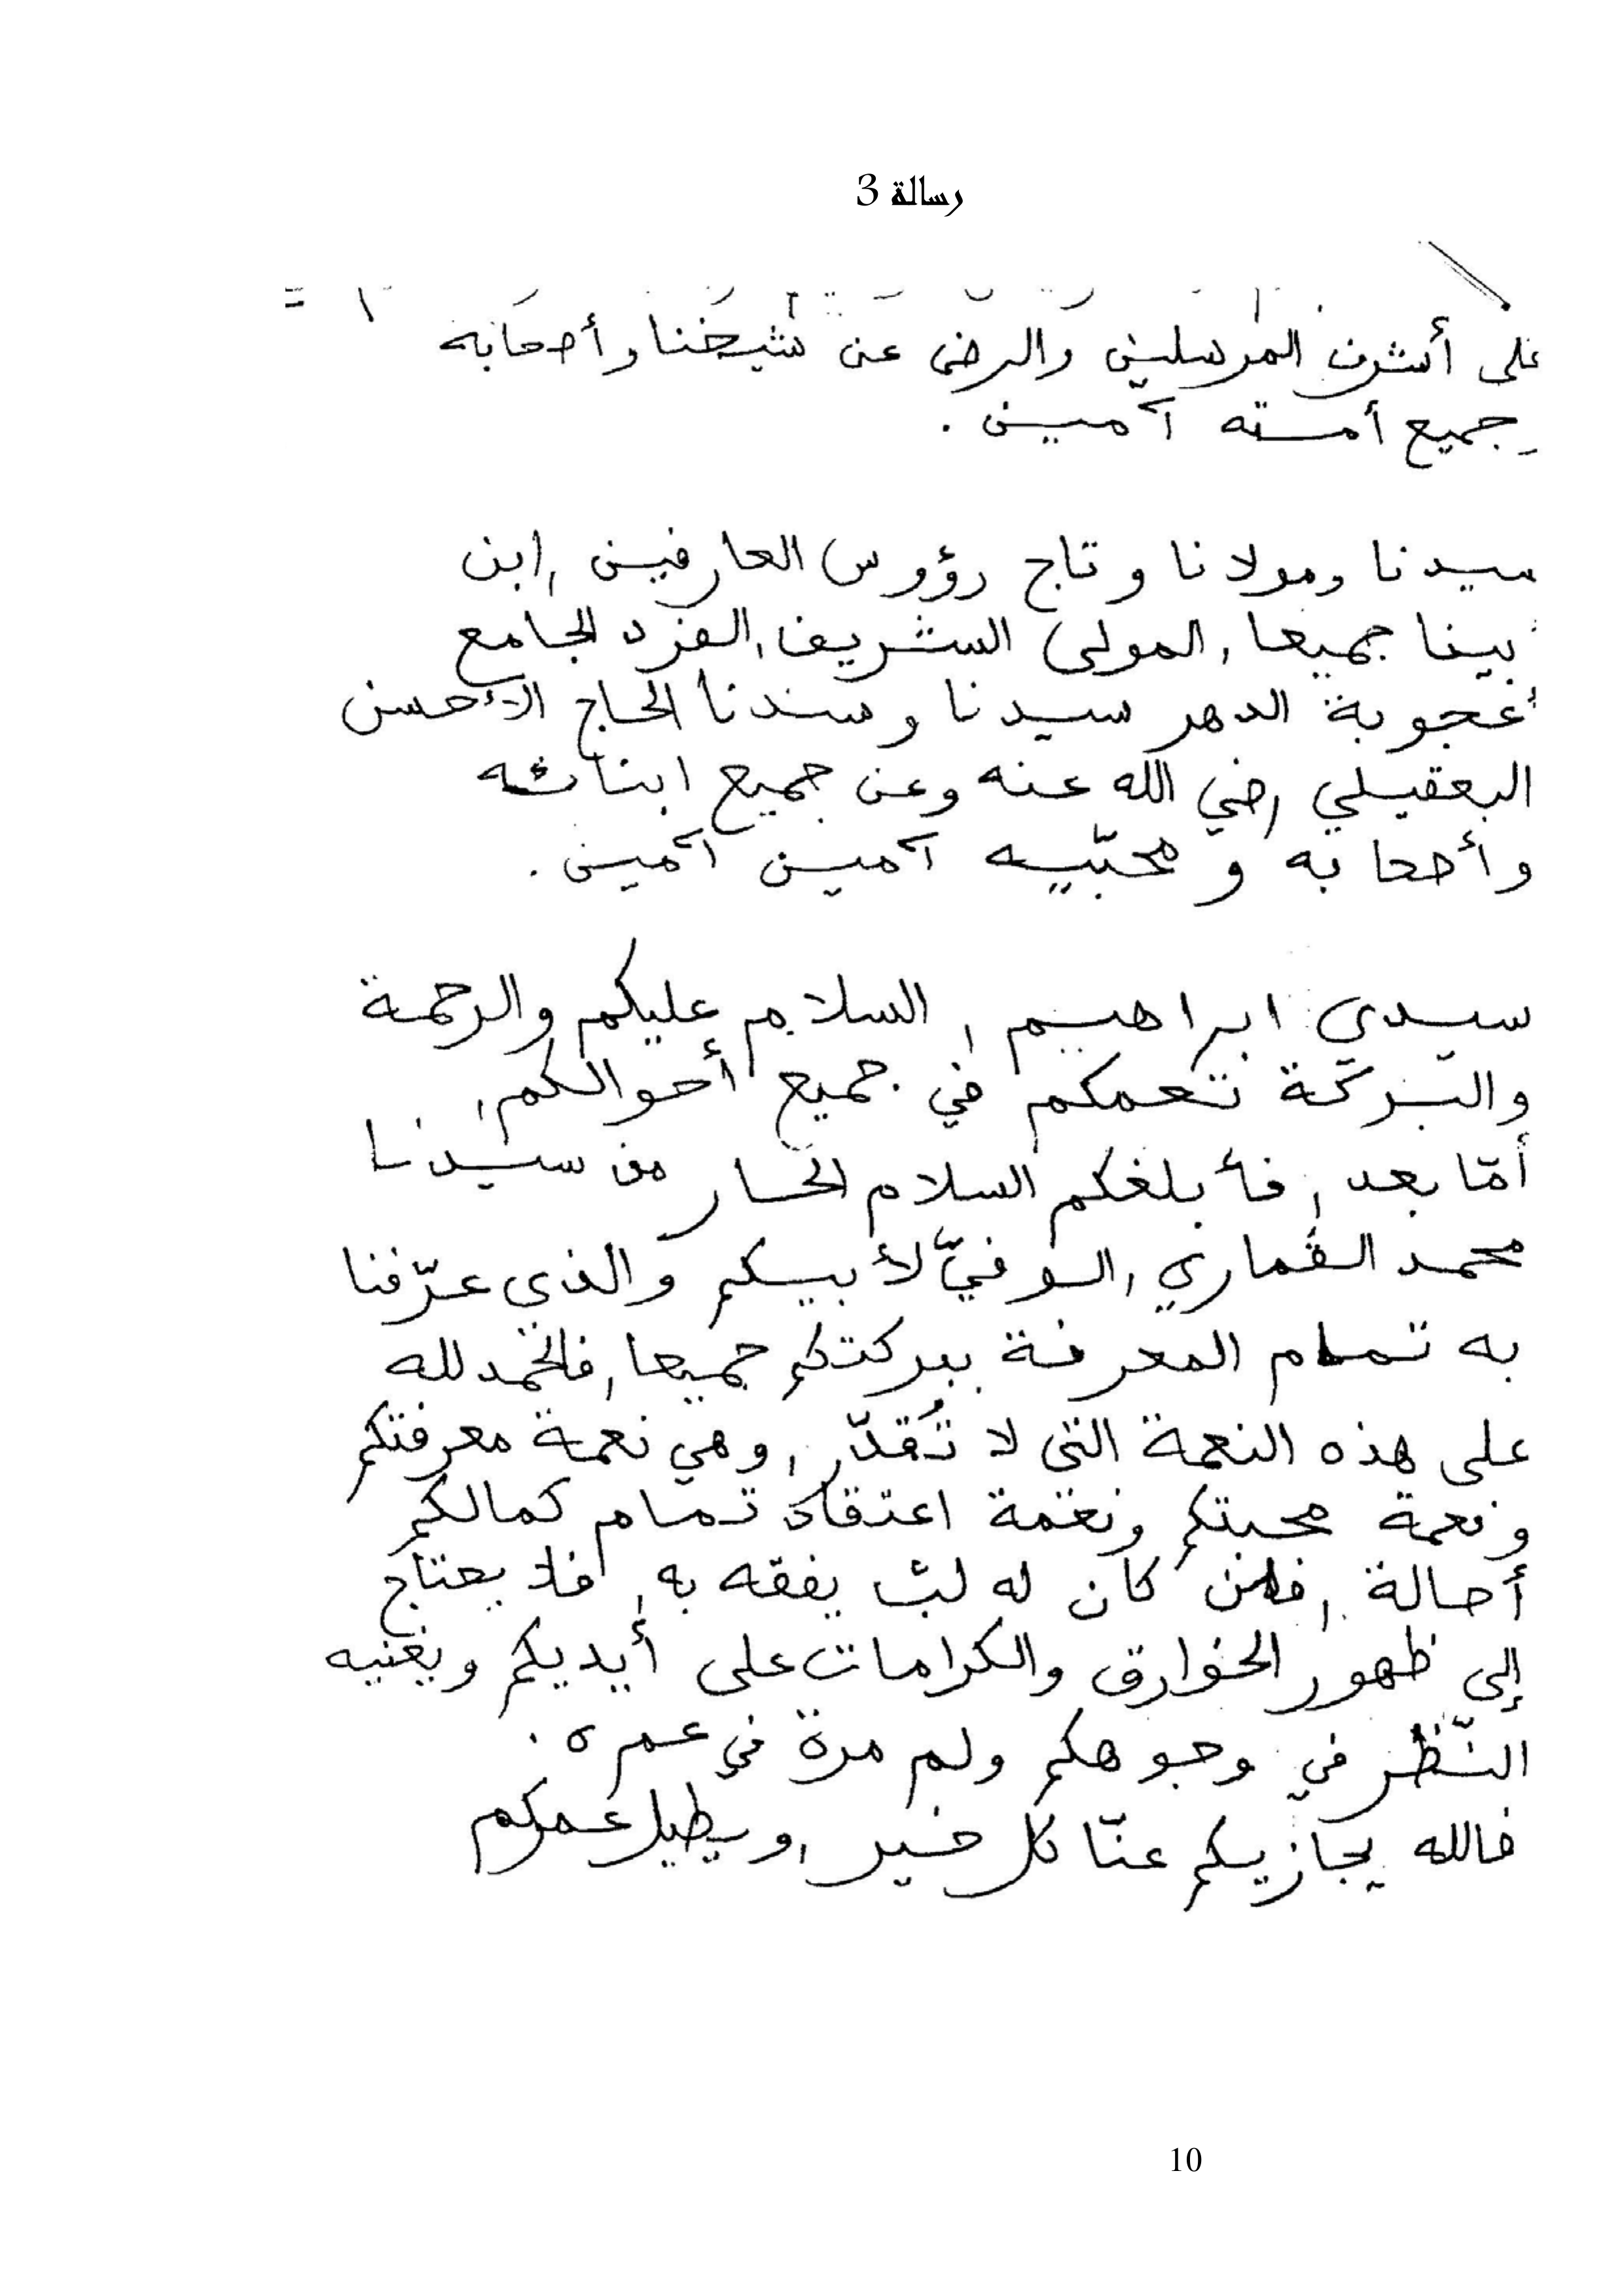 رسالة 3
على أشرف المرسلين والرضى عن شيخنا وأصحابه
وجميع أمته آمين .
سيدنا ومولانا وتاج رؤوس العارفين , ابن
بينا جميعا , المولى الشريف , الفرد الجامع
أعجوبة الدهر سيدنا وسندنا الحاج الأحسن
البعقيلي رضي الله عنه وعن جميع ابنائه
وأصحابه ومحبّيه آمين آمين .
سيدي ابراهيم , السلام عليكم والرحمة
والبركة تعمكم في جميع أحوالكم ,
أمّا بعد , فأبلغكم السلام الحار من سيدنا
محمد القماري , الوفيّ لأبيكم والذي عرّفنا
به تمام المعرفة ببركتكم جميعا , فالحمد لله
على هذه النعمة التي لا تُقدّر , وهي نعمة معرفتكم
ونعمة محبتكم ونعمة اعتقاد تمام كمالكم
أصالة , فلمن كان له لبّ يفقه به , فلا يحتاج
إلى ظهور الخوارق والكرامات على أيديكم ويغنيه
النّظر في وجوهكم ولم مرة في عمره .
فالله يجازيكم عنّا كل خير , ويطيل عمركم
10